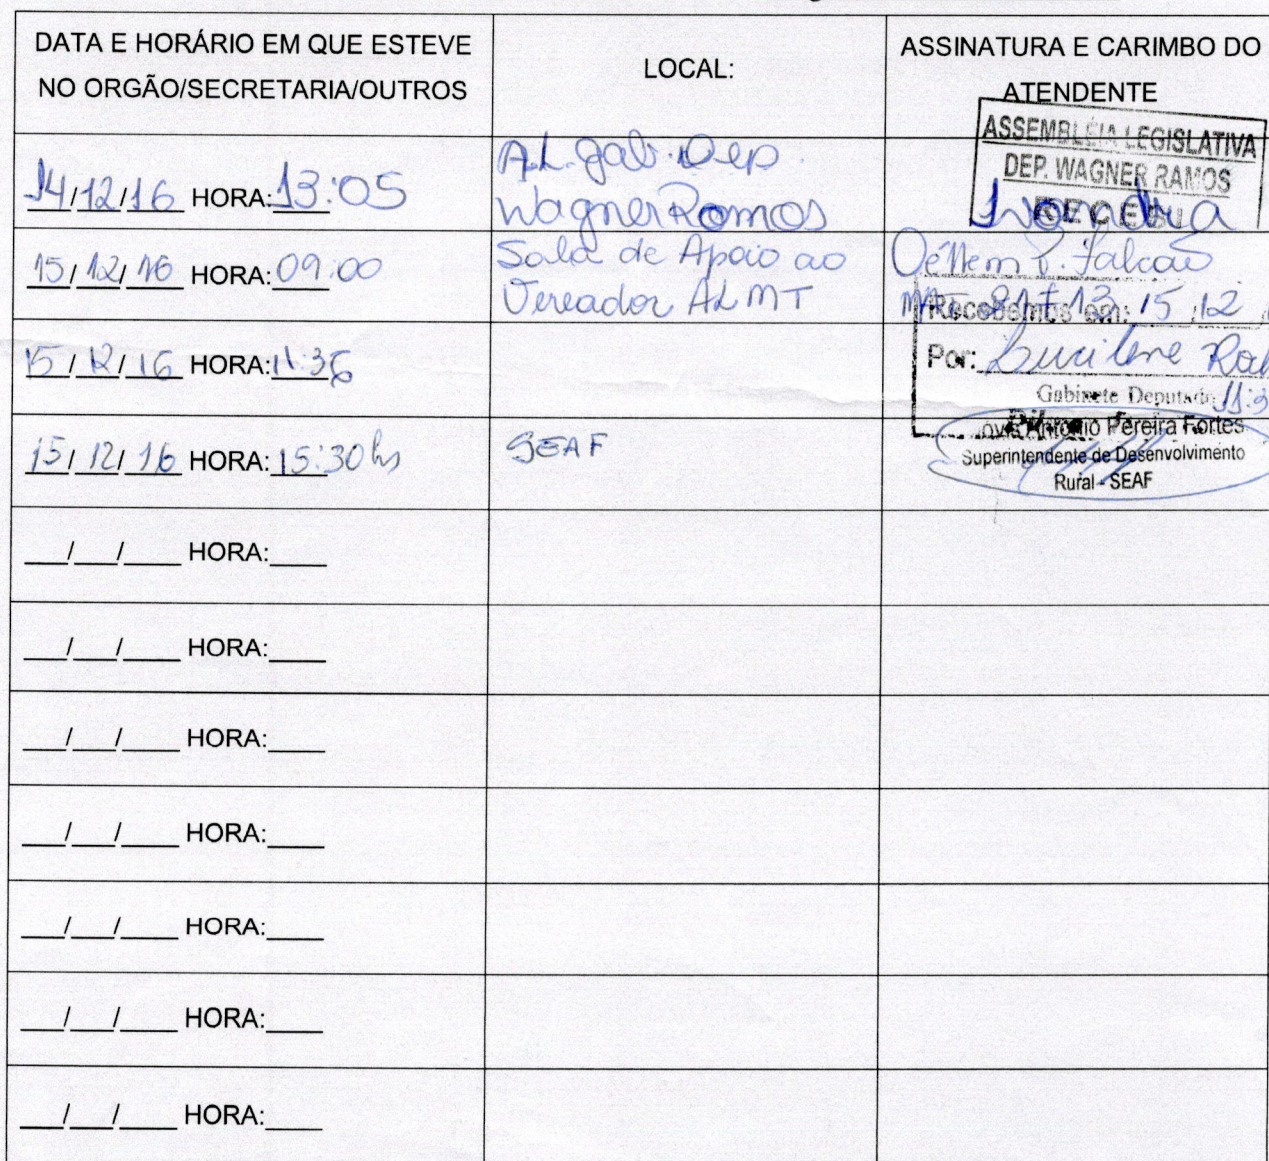 DATA E HORÁRIO EM QUE ESTEVE
NO ORGÃO/SECRETARIA/OUTROS
LOCAL:
ASSINATURA E CARIMBO DO
ATENDENTE
14/12/16 HORA: 13:05
A.L. gab. Dep.
Wagner Ramos
ASSEMBLÉIA LEGISLATIVA
DEP. WAGNER RAMOS
15/12/16 HORA: 09:00
Sala de Apoio ao
Vereador ALMT
Falcão
15/12/16 HORA: 11:36
Recebemos em: 15/12
Por: Lucilene
Gabinete Deputado
15/12/16 HORA: 15:30 hs
SEAF
Antonio Pereira Fortes
Superintendente de Desenvolvimento
Rural - SEAF
___/___/____ HORA:____
___/___/____ HORA:____
___/___/____ HORA:____
___/___/____ HORA:____
___/___/____ HORA:____
___/___/____ HORA:____
___/___/____ HORA:____